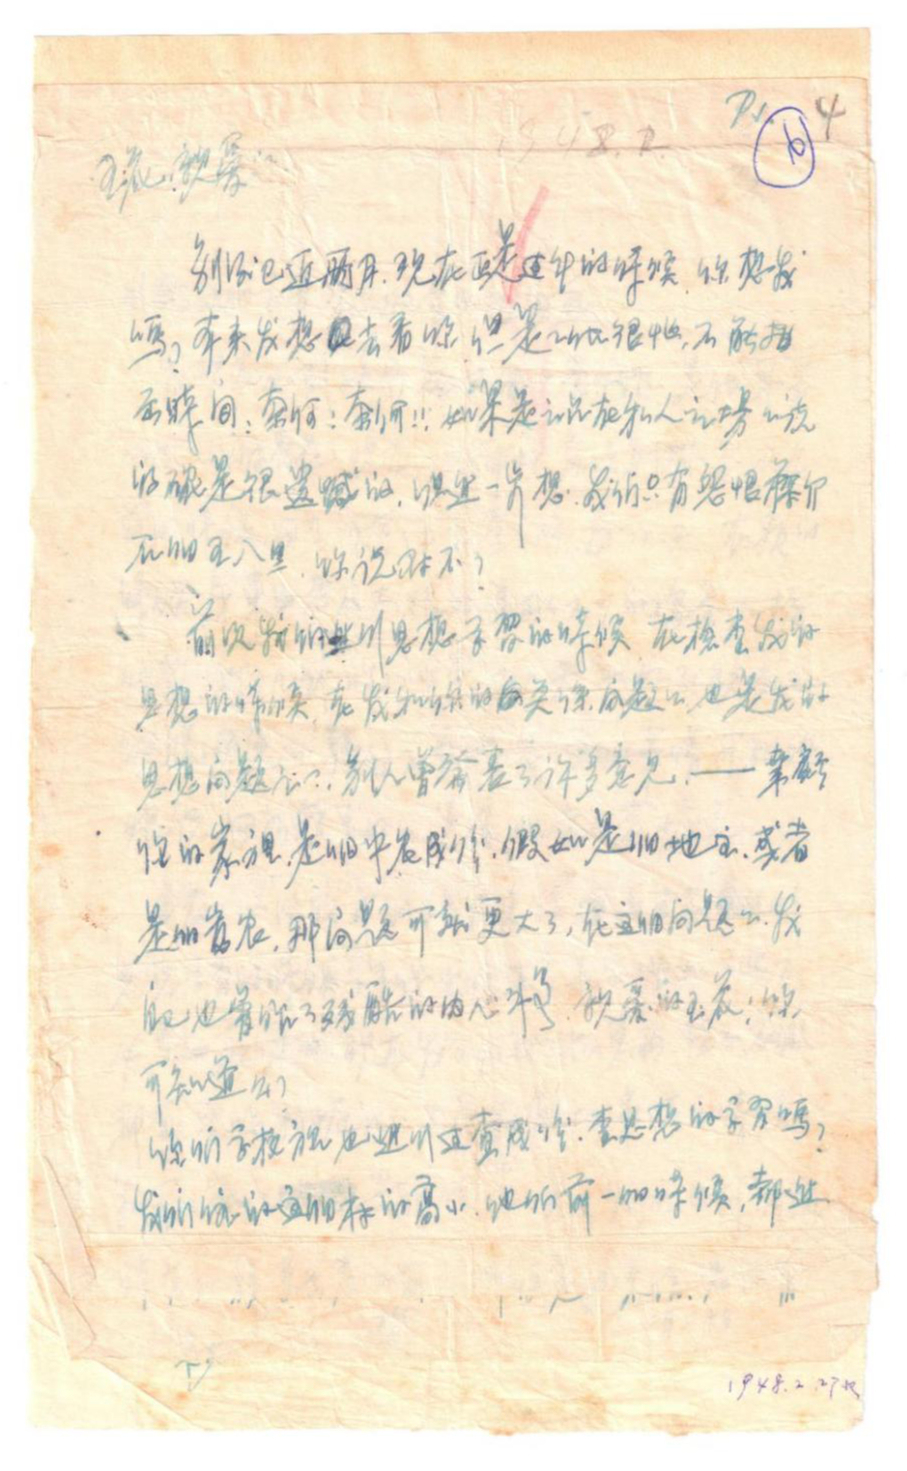 1948.2.
4
6
别后已近两月.现在正是过年的时候.你想我
吗？本来我想回去看你.但是工作很忙.不能抽
出时间：奈何！奈何！！如果是站在私人立场上说
的确是很遗憾的.但进一步想.我们只有怨恨蒋介
石的王八旦.你说对不？
前次我们进行思想学习的时候.在检查我的
思想的时候.在我和你的关系问题上.也是我的
思想问题上.别人曾发表了许多意见.——
你的家里.是个中农成分.假如是个地主.或者
是个富农.那问题可就更大了，在这个问题上.我
自己也曾作了残酷的内心斗争.亲爱的玉花：你
可知道么？
你们学校里也进行过查成份.查思想的学习吗？
我们住的这个村的高小.他们前一个时候，都进
1948.2.27